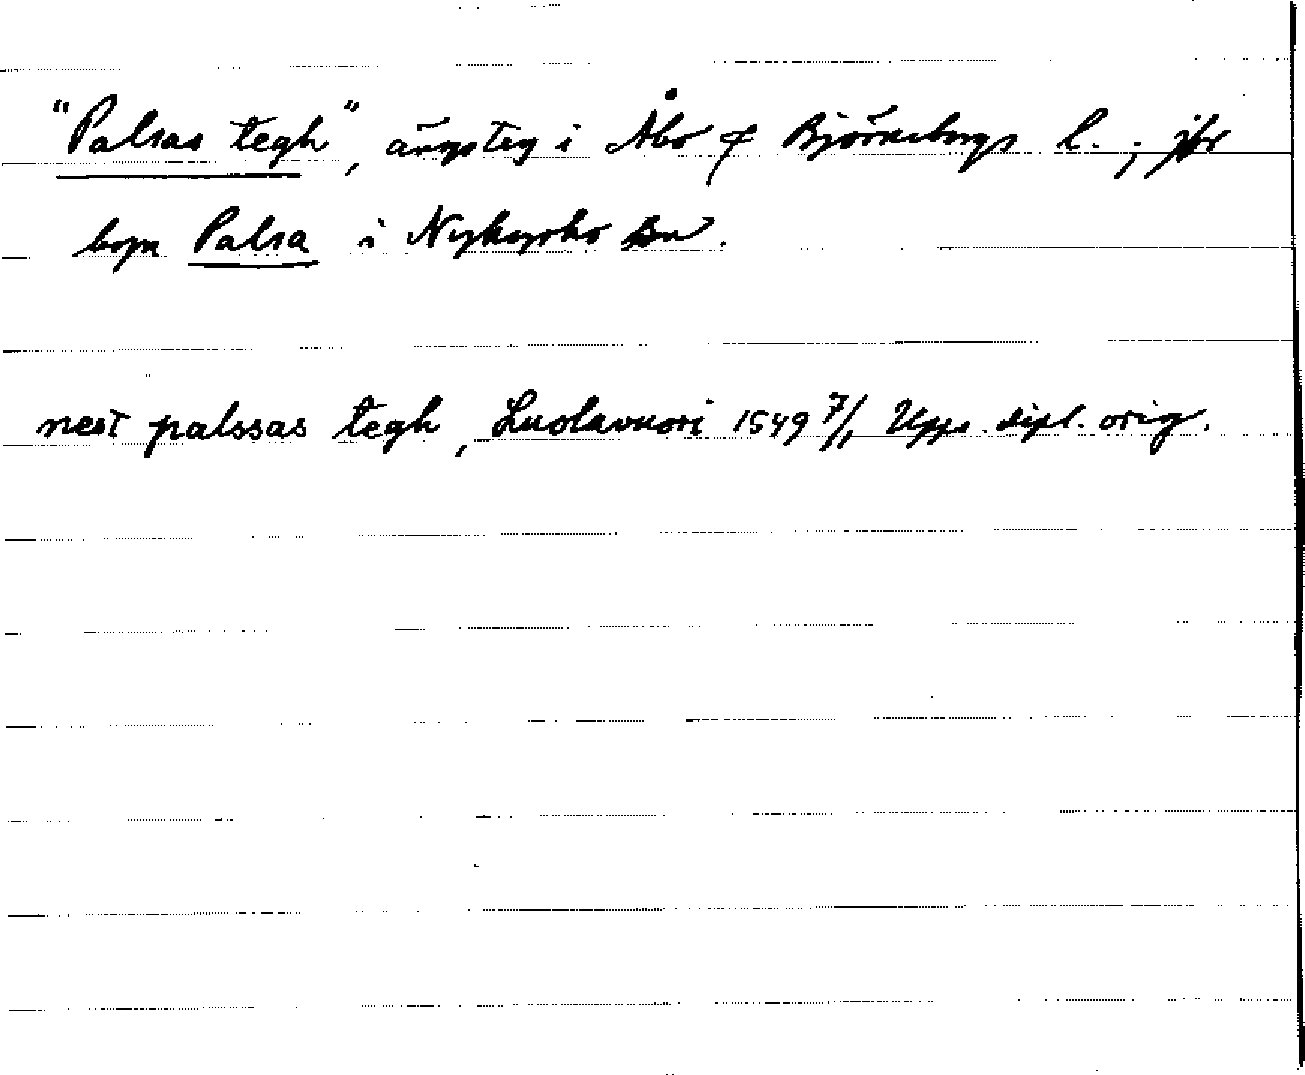 "Palsas tegh", ängsteg i Åbo & Björneborgs l.; jfr
byn Palsa i Nykyrko sn.
nest palssas tegh, Luolavuori 1549 7/1 Upps. dipl. orig.